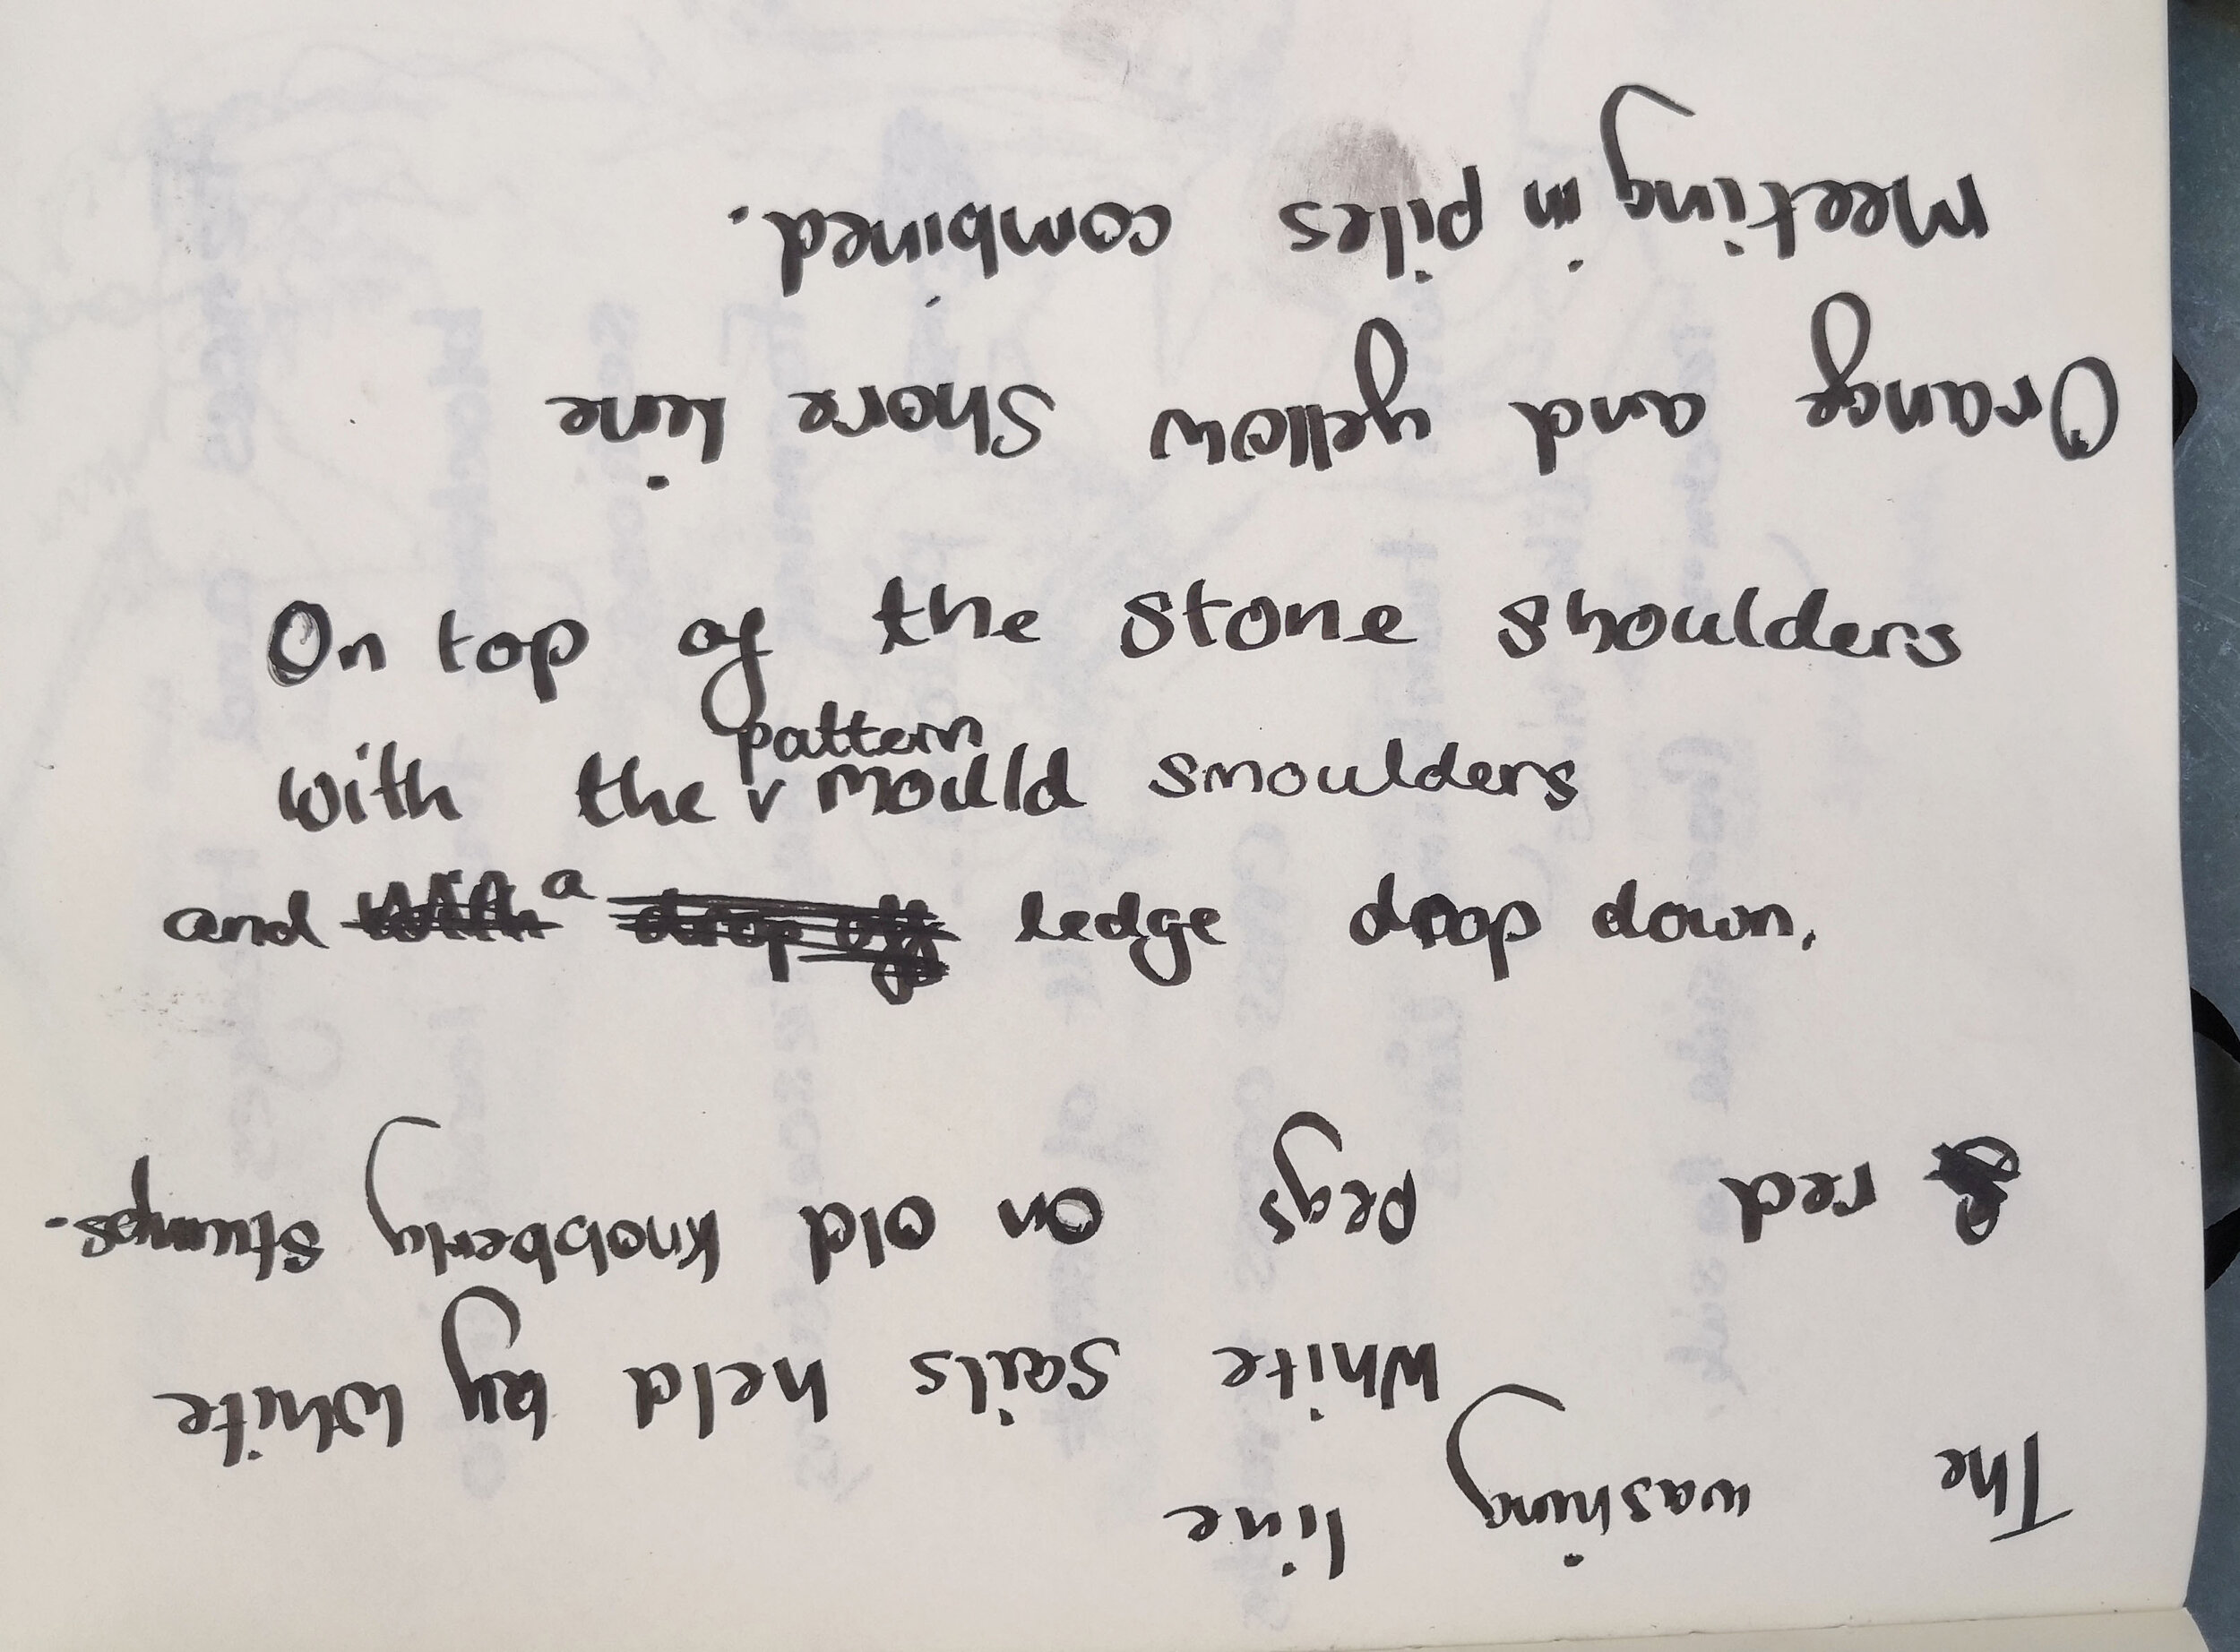 Orange and yellow Shore line
meeting in piles combined.
On top of the stone shoulders
with the pattern mould smoulders
and a ledge drop down.
The washing line
White sails held by white
red pegs on old knobberly stumps.